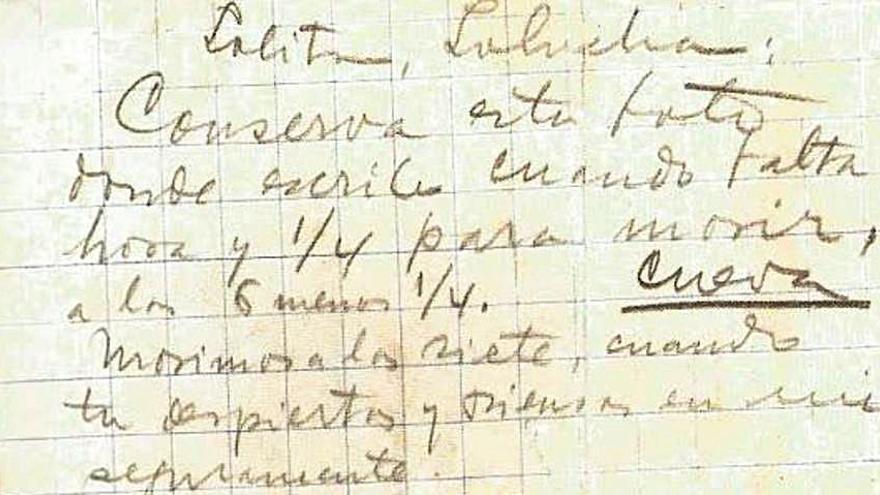 Lolita, Loluchia:
Conserva esta foto
donde escribe cuando falta
hora y 1/4 para morir,
a las 6 menos 1/4. Cueva
Morimos a las siete, cuando
tu despiertas y piensas en mi
seguramente.